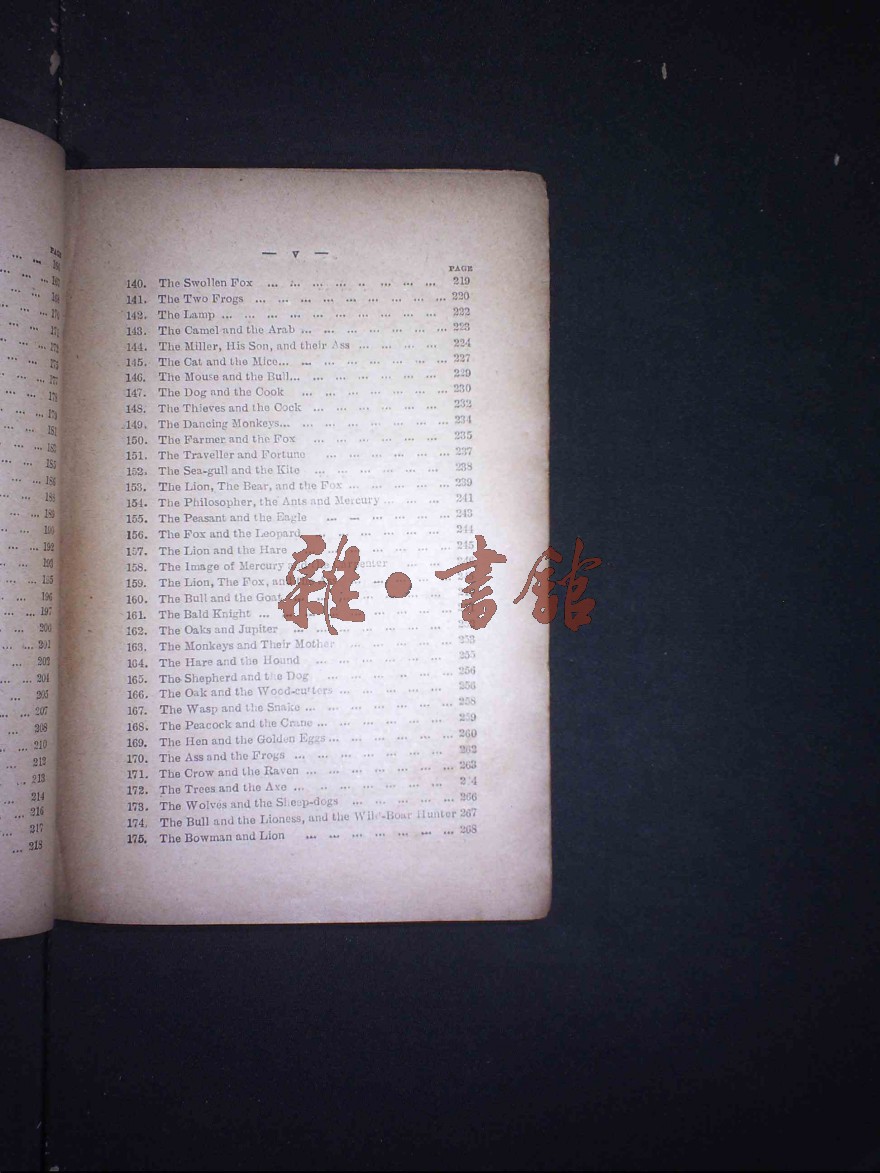 PAGE
167
168
170
171
173
175
177
178
179
181
183
185
186
188
189
190
192
193
195
196
197
200
... 201
202
204
205
... 207
208
210
212
... 213
214
... 216
217
... 218
— v —
PAGE
140. The Swollen Fox ... ... ... ... .. ... ... ... 219
141. The Two Frogs ... ... ... ... ... ... ... ... ... 220
142. The Lamp ... ... ... ... ... ... ... ... ... ... 222
143. The Camel and the Arab ... ... ... ... ... ... ... 223
144. The Miller, His Son, and their Ass ... ... ... ... ... 224
145. The Cat and the Mice... ... ... ... ... ... ... ... 227
146. The Mouse and the Bull... ... ... ... ... ... ... 229
147. The Dog and the Cook ... ... ... ... ... ... ... 230
148. The Thieves and the Cock ... ... ... ... ... ... 232
149. The Dancing Monkeys... ... ... ... ... ... ... ... 234
150. The Farmer and the Fox ... ... ... ... ... ... 235
151. The Traveller and Fortune ... ... ... ... ... ... 237
152. The Sea-gull and the Kite ... ... ... ... ... ... 238
153. The Lion, The Bear, and the Fox ... ... ... ... ... 239
154. The Philosopher, the Ants and Mercury ... ... ... 241
155. The Peasant and the Eagle ... ... ... ... ... ... 243
156. The Fox and the Leopard ... ... ... ... ... ... 244
157. The Lion and the Hare ... ... ... ... ... ... 245
158. The Image of Mercury and the Carpenter ... ...
159. The Lion, The Fox, and
160. The Bull and the Goat
161. The Bald Knight ... ...
162. The Oaks and Jupiter ... ... ... ... ... ... ...
163. The Monkeys and Their Mother ... ... ... ... ... 253
164. The Hare and the Hound ... ... ... ... ... ... 255
165. The Shepherd and the Dog ... ... .. ... ... 256
166. The Oak and the Wood-cutters ... ... ... ... ... 256
167. The Wasp and the Snake ... ... ... ... ... ... ... 258
168. The Peacock and the Crane ... ... ... ... ... ... 259
169. The Hen and the Golden Eggs ... ... ... ... ... ... 260
170. The Ass and the Frogs ... ... ... ... ... ... ... 262
171. The Crow and the Raven ... ... ... ... ... ... ... 263
172. The Trees and the Axe ... .. ... ... ... ... ... 264
173. The Wolves and the Sheep-dogs ... ... ... ... ... 266
174. The Bull and the Lioness, and the Wild-Boar Hunter 267
175. The Bowman and Lion ... ... ... ... ... ... ... 268
雜·書館